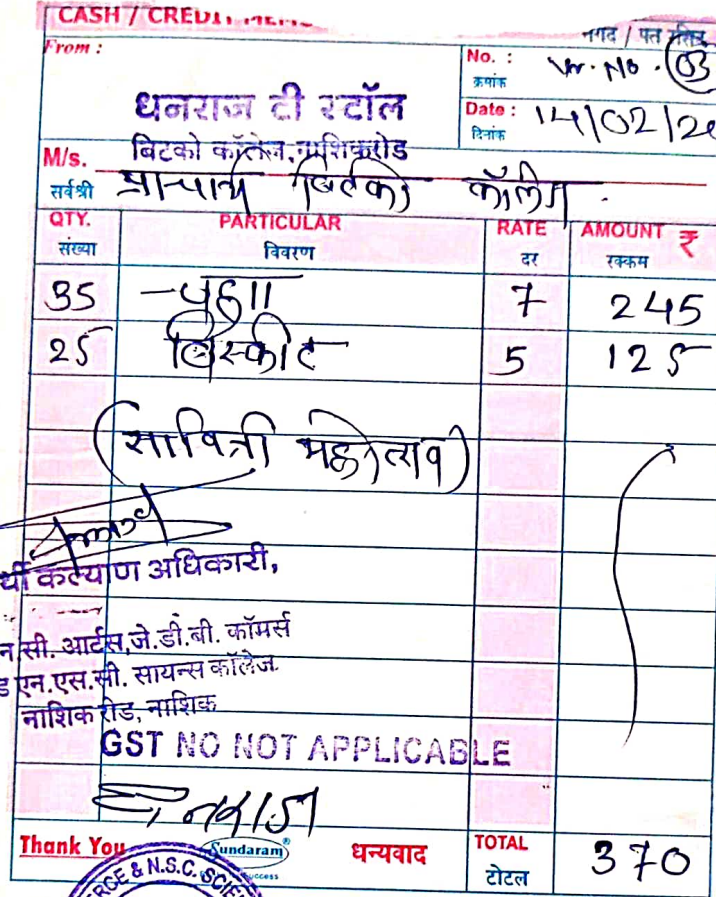 CASH / CREDIT MEMO
नगद / पत
From :
No. : Vr. No. 03
क्रमांक
धनराज टी स्टॉल
Date : 14/02/20
दिनांक
बिटको कॉलेज, नाशिकरोड
M/s.
सर्वश्री प्राचार्य बिटको कॉलेज
QTY. PARTICULAR RATE AMOUNT ₹
संख्या विवरण दर रक्कम
35 चहा 7 245
25 बिस्कीट 5 125
(सावित्री महोत्सव)
र्थी कल्याण अधिकारी,
न.सी. आर्टस,जे.डी.बी. कॉमर्स
ड एन.एस.सी. सायन्स कॉलेज
नाशिक रोड, नाशिक
GST NO NOT APPLICABLE
Thank You Sundaram® धन्यवाद TOTAL 370
टोटल
ERCE & N.S.C. SCIE